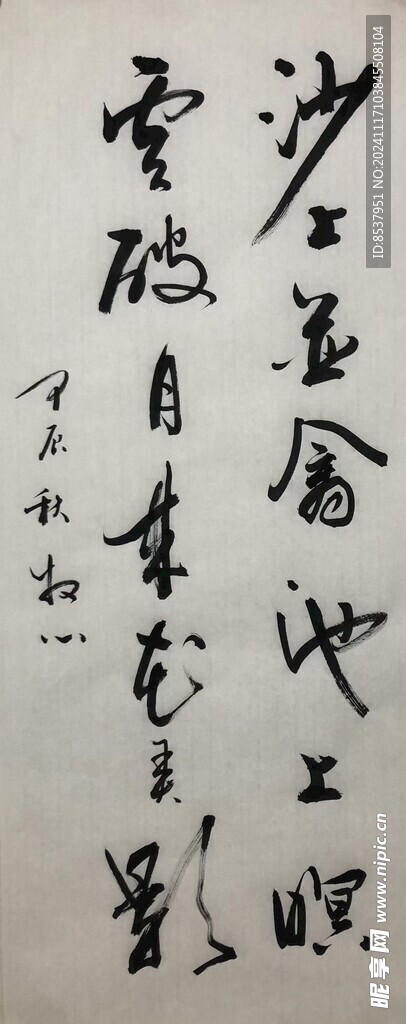 沙上並禽池上暝
雲破月来花弄影
甲辰秋牧心
ID:8537951 NO:20241117103845508104
昵享网 www.nipic.cn